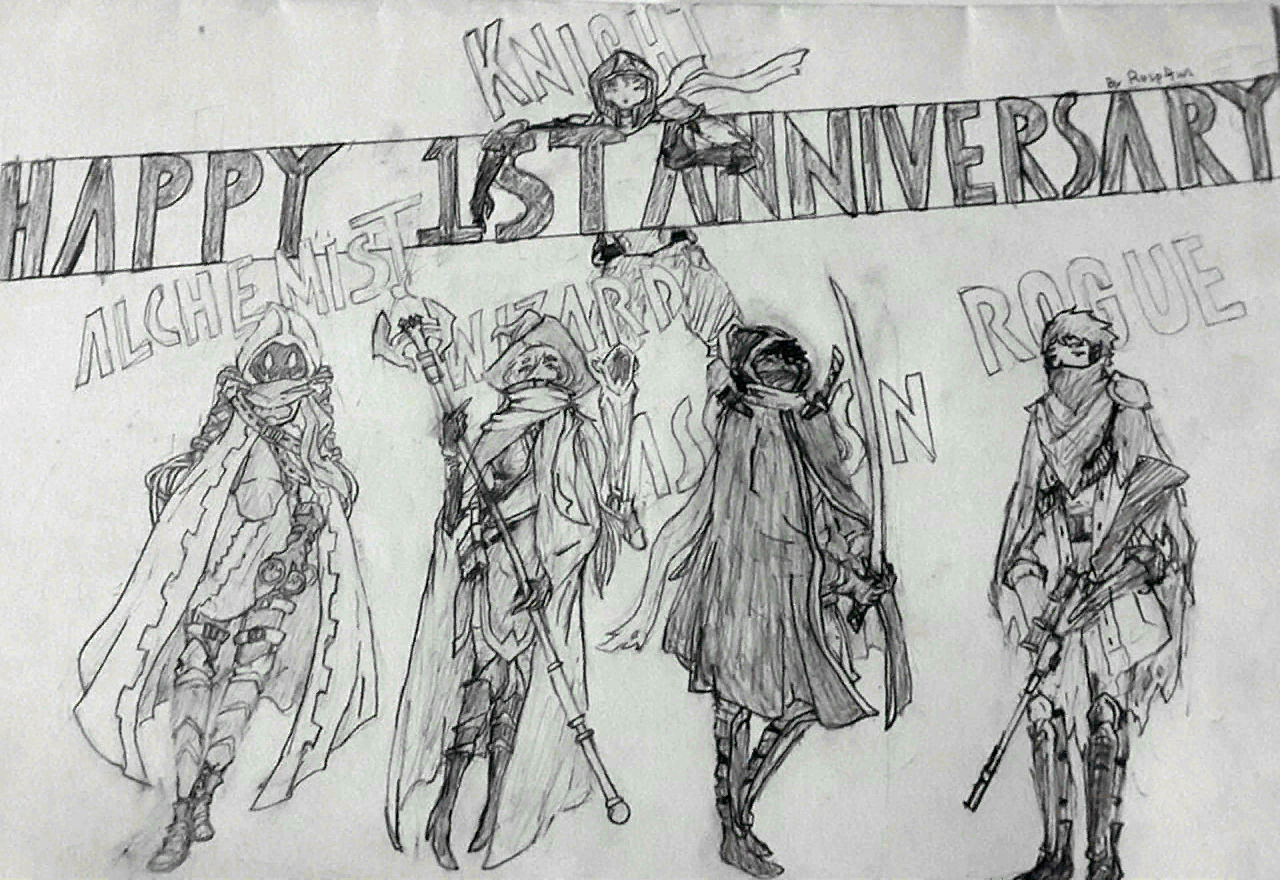 KNIGHT
By
HAPPY 1ST ANNIVERSARY
ALCHEMIST
WIZARD
ROGUE